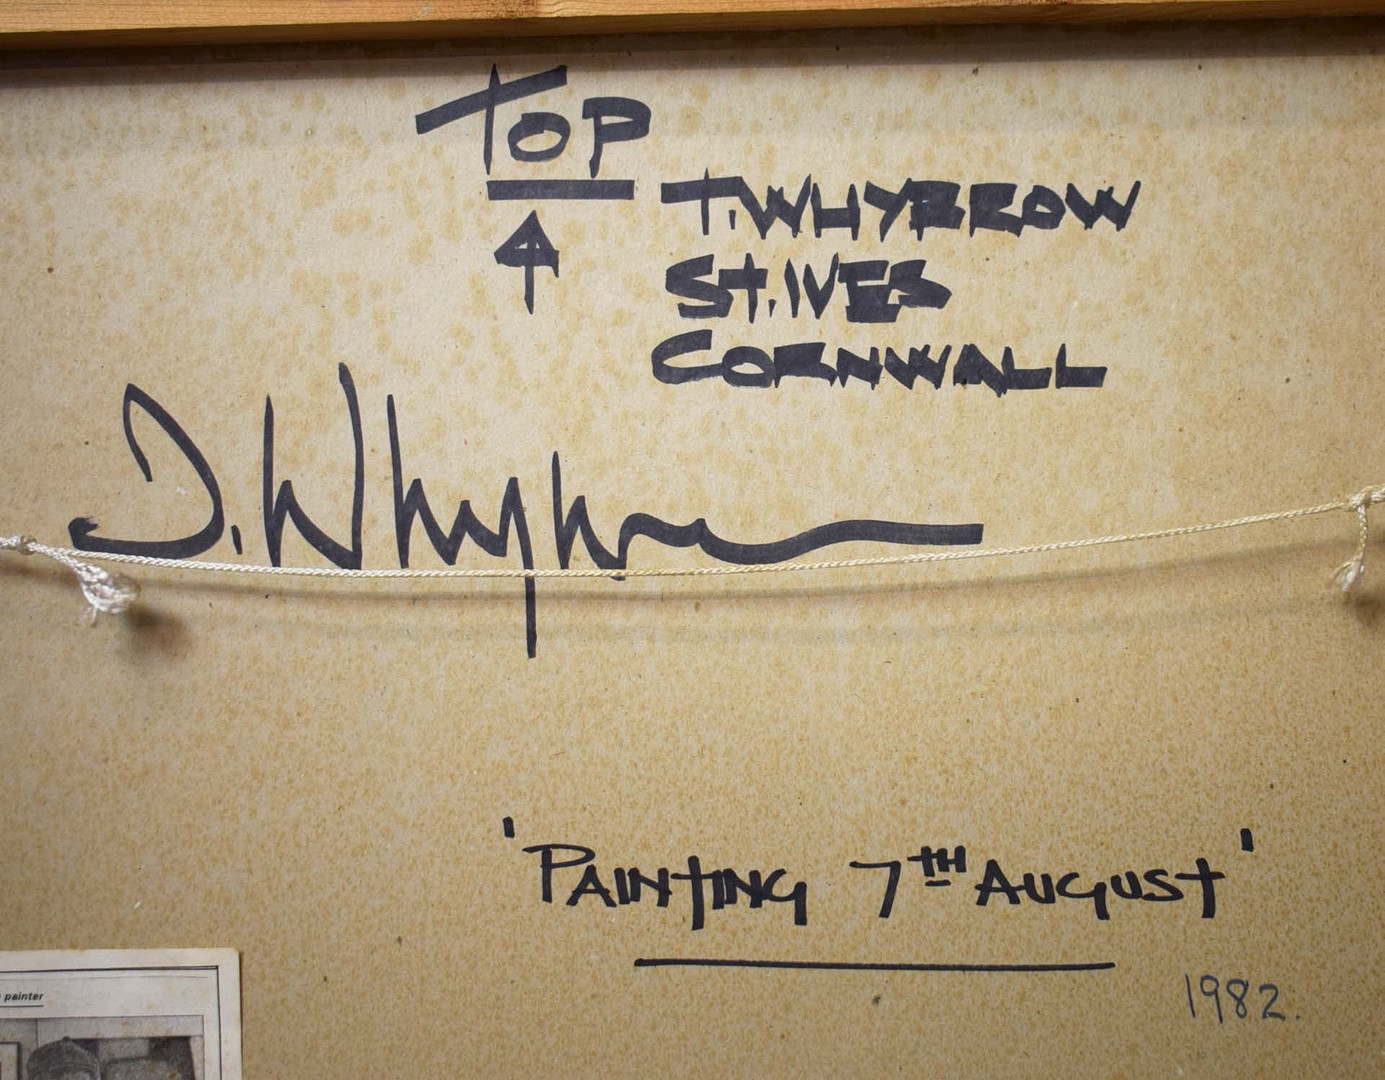 TOP
T. WHYBROW
ST. IVES
CORNWALL
T. Whybrow
'PAINTING 7TH AUGUST'
1982.
painter